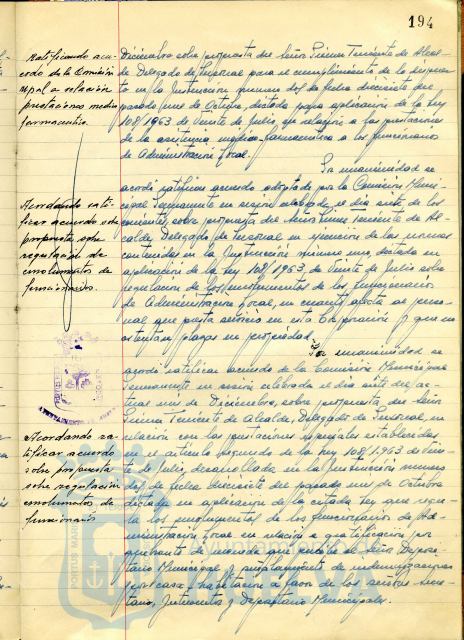 194
Ratificando acuerdo de la Comisión
mpal a relación
prestaciones medico
farmaceutica.
Diciembre sobre propuesta del Señor Primer Teniente de Alcal-
de Delegado de Personal para el cumplimiento de lo dispues-
to en la Instrucción numero dos de fecha diecisiete del
pasado mes de Octubre, dictada para aplicación de la Ley
108/1963 de veinte de Julio, en relación a las prestaciones
de la asistencia médico-farmaceutica a los funcionarios
de Administración Local.
Acordando rati-
ficar acuerdo sobre
propuesta sobre
regulación de
emolumentos de
funcionarios.
Por unanimidad se
acordó ratificar acuerdo adoptado por la Comisión Muni-
cipal Permanente en sesión celebrada el dia siete de los
corrientes, sobre propuesta del Señor Primer Teniente de Al-
calde Delegado de Personal en ejecución de las normas
contenidas en la Instrucción número uno, dictada en
aplicación de la Ley 108/1963, de veinte de Julio sobre
regulación de los emolumentos de los funcionarios
de Administración Local, en cuanto afecta al perso-
nal que presta servicio en esta Corporación y que no
ostentan plazas en propiedad.
Acordando ra-
tificar acuerdo
sobre propuesta
sobre regulación
emolumentos de
funcionarios
Por unanimidad se
acordó ratificar acuerdo de la Comisión Municipal
Permanente en sesión celebrada el dia siete del ac-
tual mes de Diciembre, sobre propuesta del Señor
Primer Teniente de Alcalde, Delegado de Personal, en
relación con las prestaciones especiales establecidas
en el artículo segundo de la Ley 108/1963, de vein-
te de Julio, desarrollada en la Instrucción numero
dos de fecha diecisiete del pasado mes de Octubre
dictada en aplicación de la citada Ley que regu-
la los emolumentos de los funcionarios de Ad-
ministración Local en relación a gratificación por
quebranto de moneda que percibe el Señor Deposi-
tario Municipal y señalamiento de indemnizaciones
por casa-habitación a favor de los señores Secre-
tario, Interventor y Depositario Municipales.